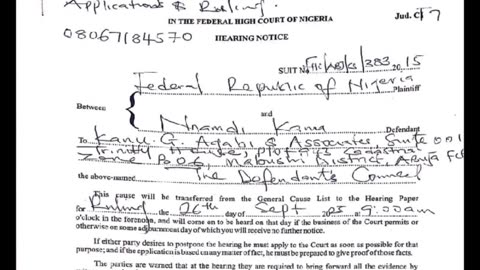 Applications & Ruling.
IN THE FEDERAL HIGH COURT OF NIGERIA
Jud. CF 7
08067184570
HEARING NOTICE
SUIT No FHC/ABJ/CS/383/2015
Federal Republic of Nigeria
Plaintiff
Between
and
Nnamdi Kanu
Defendant
To Kanu G. Agabi & Associates, Suite 001
Trinity House,
Zone Mabushi District, Abuja FCT
the above-named The Defendant's Counsel
This cause will be transferred from the General Cause List to the Hearing Paper
for Ruling the 26th day of Sept 2025 9:00am
o'clock in the forenoon, and will come on to be heard on that day if the business of the Court permits or
otherwise on some adjournment day of which you will receive no further notice.
If either party desires to postpone the hearing he must apply to the Court as soon as possible for that
purpose; and if the application is based on any matter of fact, he must be prepared to give proof of those facts.
The parties are warned that at the hearing they are required to bring forward all the evidence by